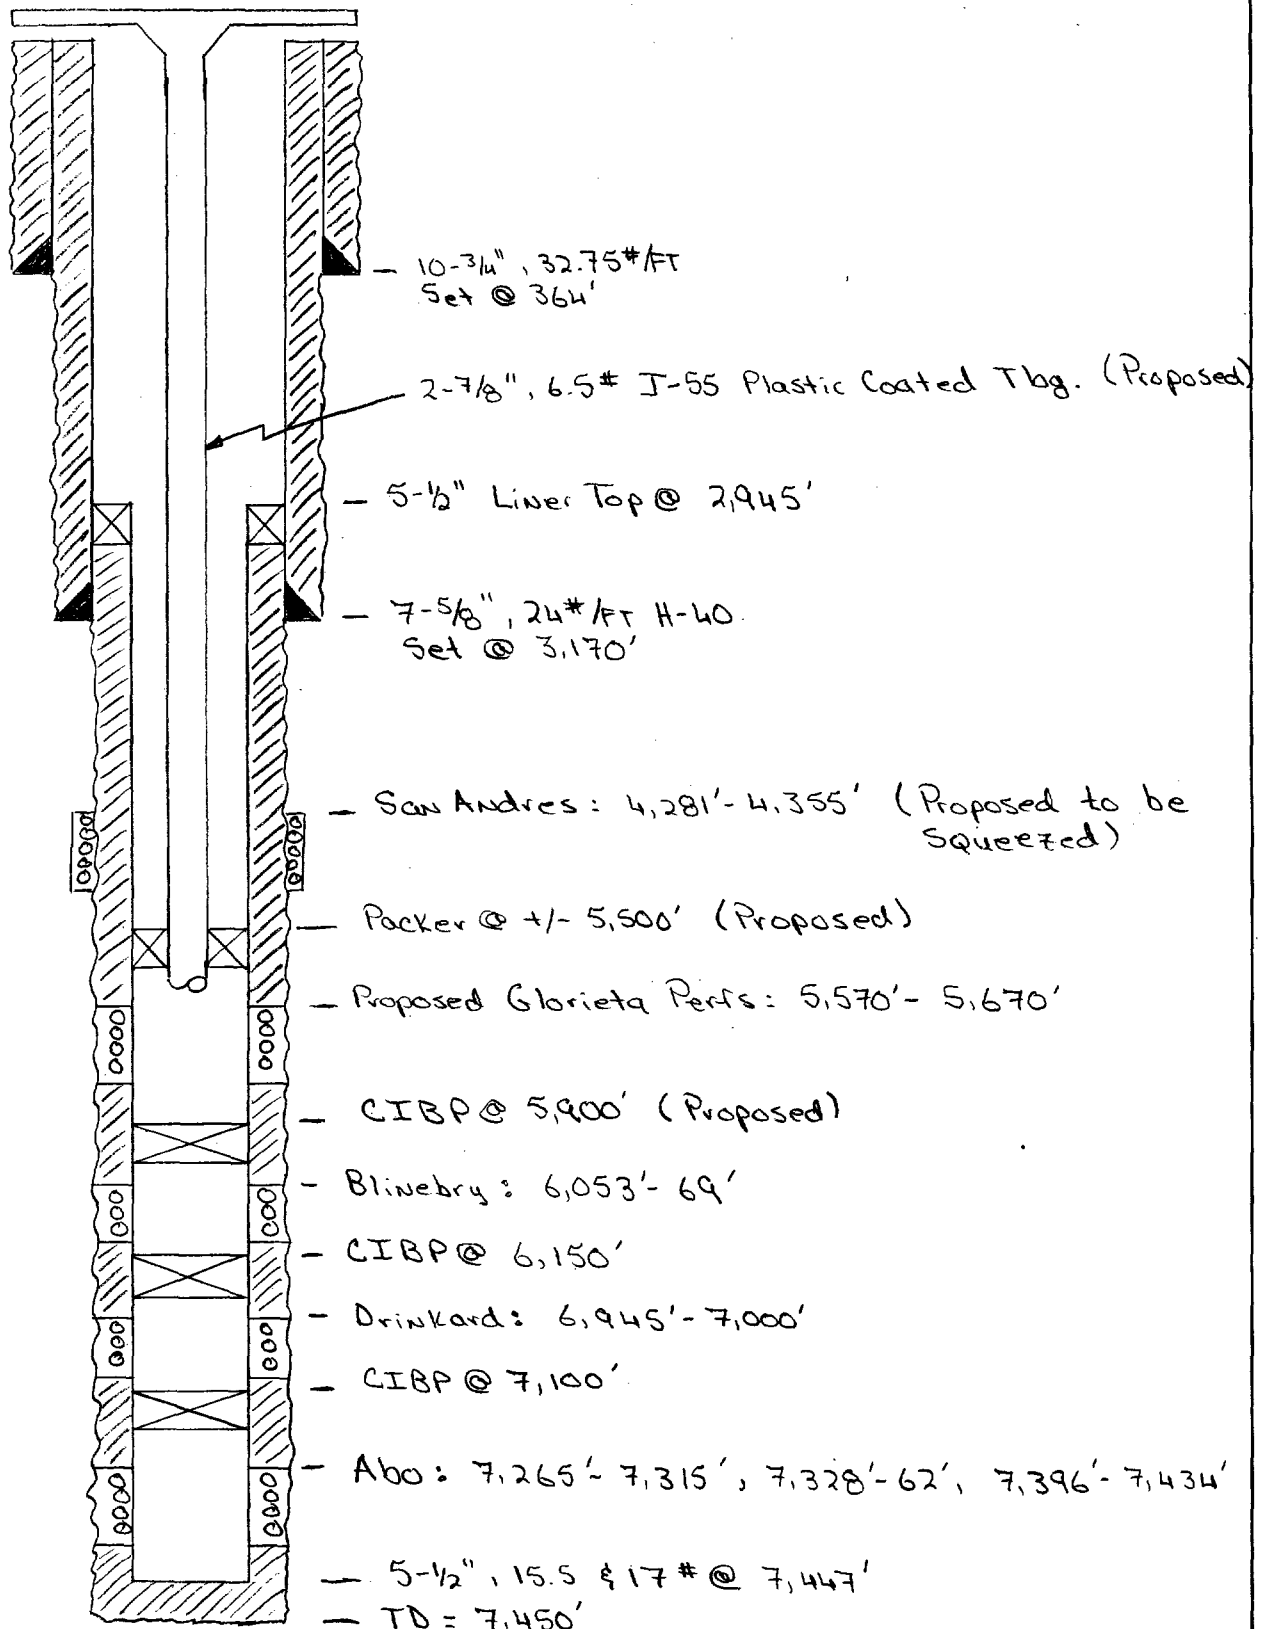 10-3/4", 32.75#/FT
Set @ 364'
2-7/8", 6.5# J-55 Plastic Coated Tbg. (Proposed)
5-1/2" Liner Top @ 2,945'
7-5/8", 24#/FT H-40
Set @ 3,170'
San Andres: 4,281'-4,355' (Proposed to be
Squeezed)
Packer @ +/- 5,500' (Proposed)
Proposed Glorieta Perfs: 5,570'- 5,670'
CIBP @ 5,900' (Proposed)
Blinebry: 6,053'- 69'
CIBP @ 6,150'
Drinkard: 6,945'- 7,000'
CIBP @ 7,100'
Abo: 7,265'- 7,315', 7,328'-62', 7,396'- 7,434'
5-1/2", 15.5 & 17# @ 7,447'
TD = 7,450'